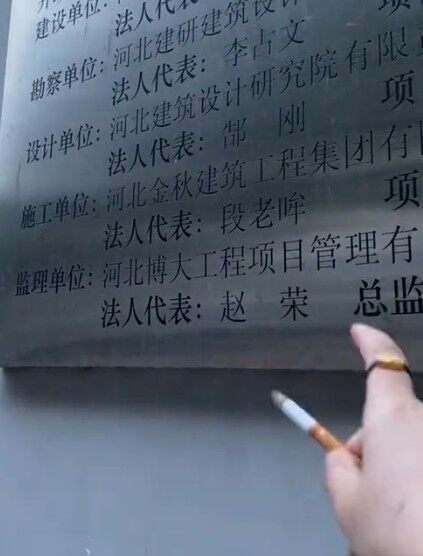 建设单位:
法人代表:
勘察单位: 河北建研建筑设计
法人代表: 李占文
设计单位: 河北建筑设计研究院有限
法人代表: 郜 刚 项
施工单位: 河北金秋建筑工程集团有
法人代表: 段老哞 项
监理单位: 河北博大工程项目管理有
法人代表: 赵 荣 总监